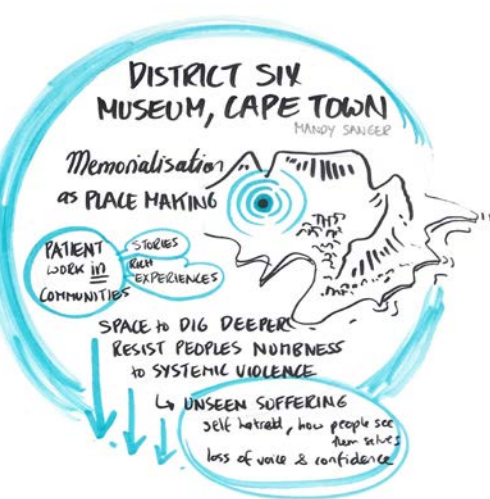 DISTRICT SIX
MUSEUM, CAPE TOWN
MANDY SANGER
Memorialisation
as PLACE MAKING
PATIENT
WORK in
COMMUNITIES
STORIES
RICH
EXPERIENCES
SPACE to DIG DEEPER
RESIST PEOPLES NUMBNESS
to SYSTEMIC VIOLENCE
↳ UNSEEN SUFFERING
self hatred, how people see
them selves
loss of voice & confidence